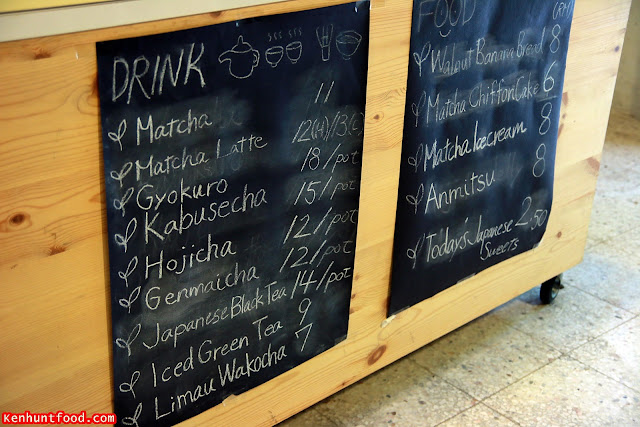 DRINK
Matcha 11
Matcha Latte 12(H)/13(C)
Gyokuro 18/pot
Kabusecha 15/pot
Hojicha 12/pot
Genmaicha 12/pot
Japanese Black Tea 14/pot
Iced Green Tea 9
Limau Wakocha 7
FOOD (RM)
Walnut Banana Bread 8
Matcha Chiffon Cake 6
Matcha Icecream 8
Anmitsu 8
Today's Japanese 2.50
Sweets
Kenhuntfood.com